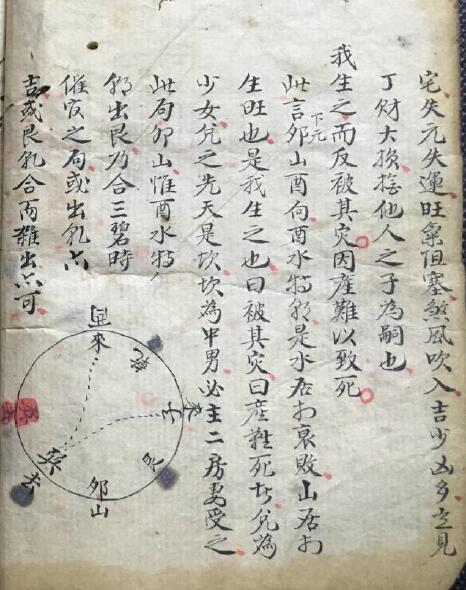 宅失元失運旺氣阻塞煞風吹入吉少凶多立見
丁財大損撫他人之子為嗣也
我生之而反被其灾因產難以致死
此言下元夘山酉向酉水特朝是水居於衰敗山居於
生旺也是我生之也曰被其灾曰產難死者兌為
少女兌之先天是坎坎為中男必主二房妻受之
此局夘山惟酉水特
朝出艮乃合三碧時
催官之局或出乹亦
吉或艮乹合而雜出亦可
來
乾
艮
去
夘山